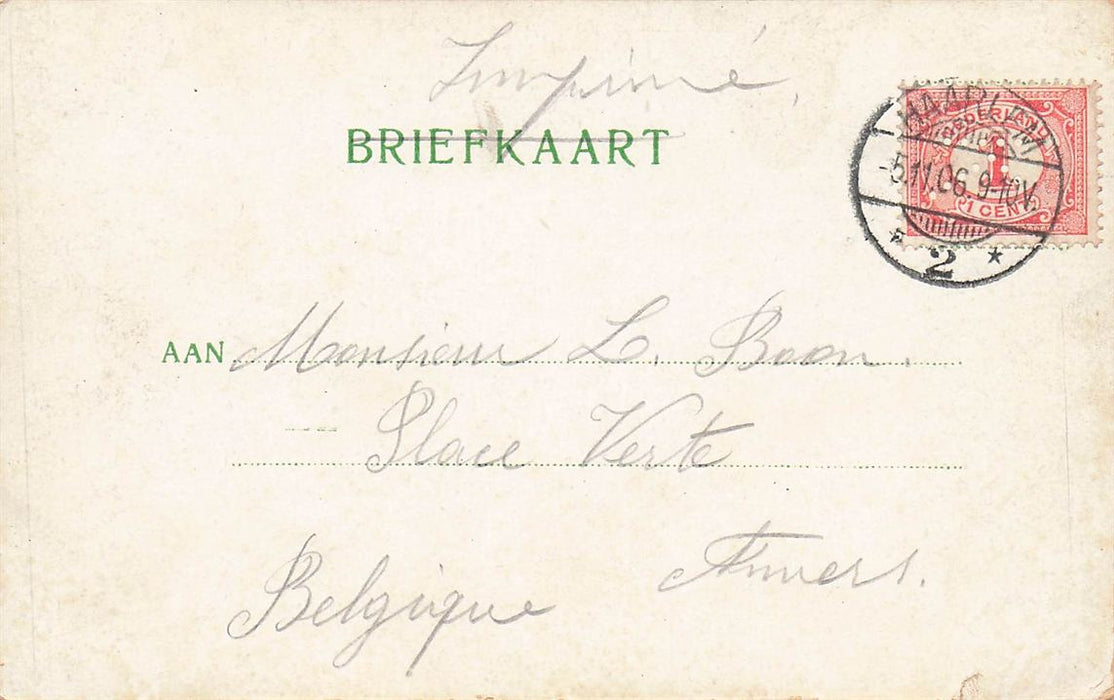 Imprimé,
BRIEFKAART
HAARLEM
NEDERLAND
1
1 CENT
-5.11.06. 9-10V.
2 *
AAN Monsieur L. Boon.
Place Verte
Anvers.
Belgique